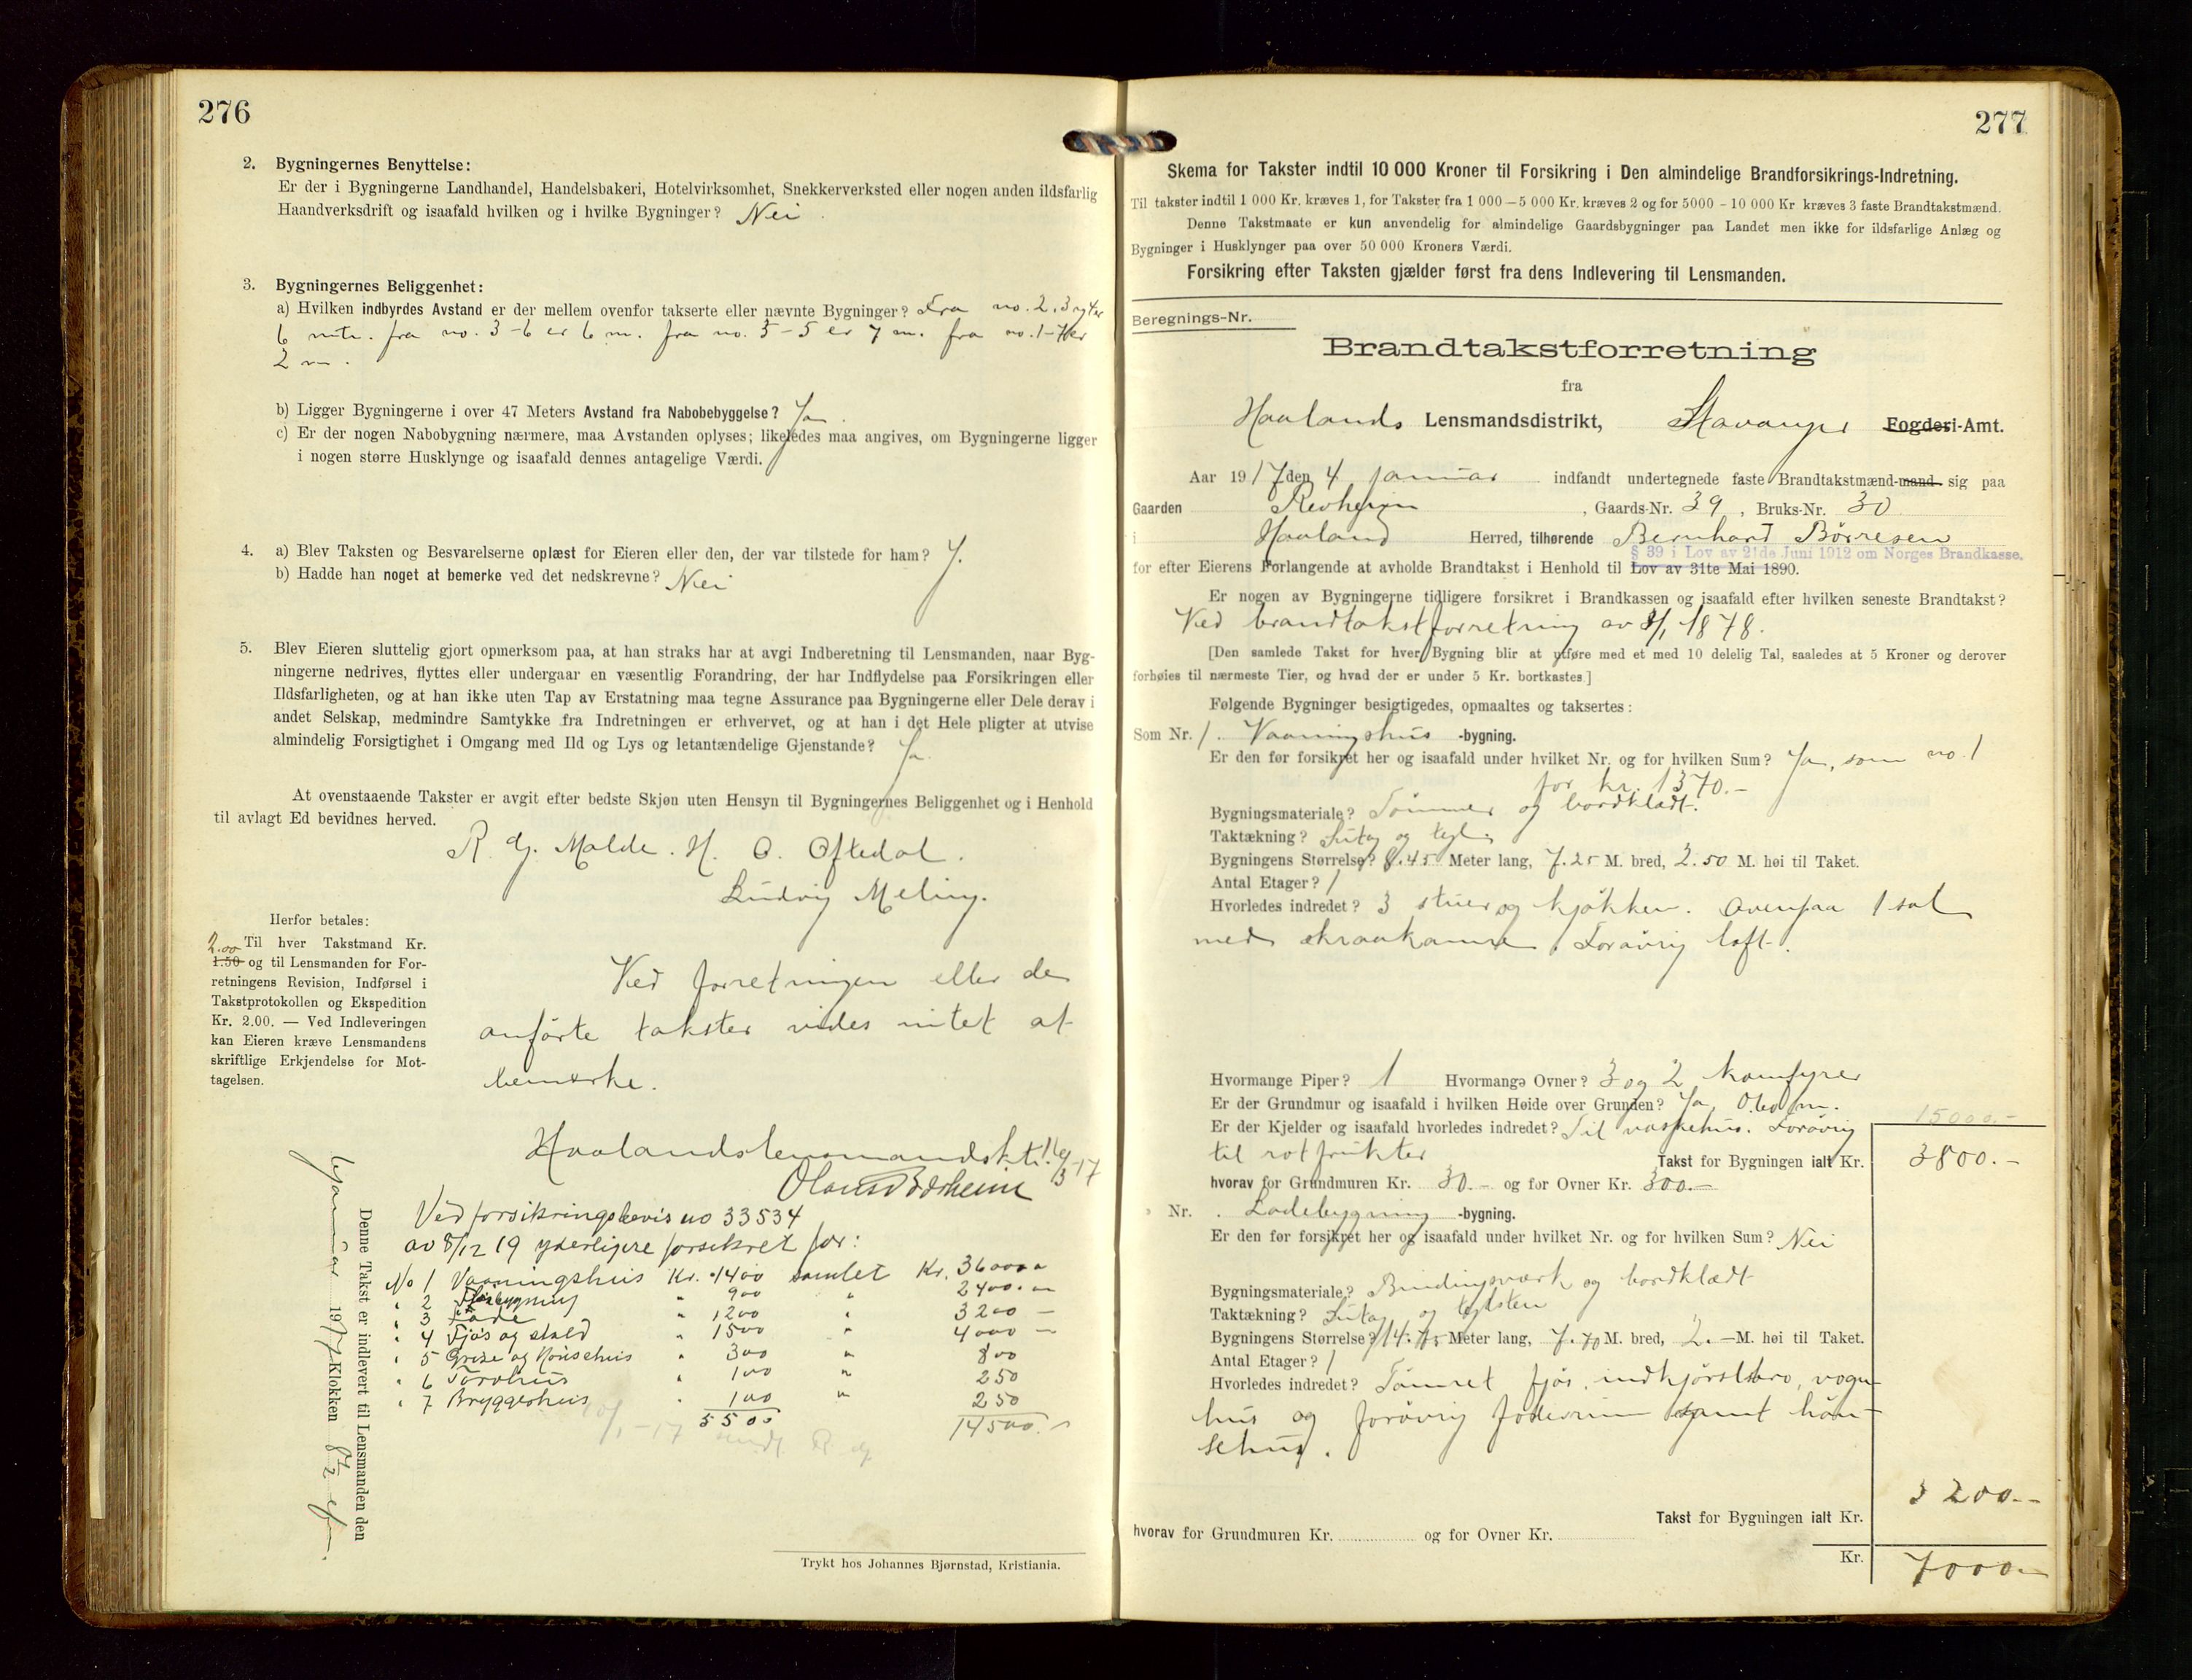 276
2. Bygningernes Benyttelse:
Er der i Bygningerne Landhandel, Handelsbakeri, Hotelvirksomhet, Snekkerverksted eller nogen anden ildsfarlig
Haandverksdrift og isaafald hvilken og i hvilke Bygninger? Nei
3. Bygningernes Beliggenhet:
a) Hvilken indbyrdes Avstand er der mellem ovenfor takserte eller nævnte Bygninger? Fra no. 2, 3 og 4 er
6 mtr. fra no. 3-6 er 6 m. fra no. 3-5 er 7 m. fra no. 1-7 er
2 m.
b) Ligger Bygningerne i over 47 Meters Avstand fra Nabobebyggelse? Ja
c) Er der nogen Nabobygning nærmere, maa Avstanden oplyses; likeledes maa angives, om Bygningerne ligger
i nogen større Husklynge og isaafald dennes antagelige Værdi.
4. a) Blev Taksten og Besvarelserne oplæst for Eieren eller den, der var tilstede for ham? J.
b) Hadde han noget at bemerke ved det nedskrevne? Nei
5. Blev Eieren sluttelig gjort opmerksom paa, at han straks har at avgi Indberetning til Lensmanden, naar Byg-
ningerne nedrives, flyttes eller undergaar en væsentlig Forandring, der har Indflydelse paa Forsikringen eller
Ildsfarligheten, og at han ikke uten Tap av Erstatning maa tegne Assurance paa Bygningerne eller Dele derav i
andet Selskap, medmindre Samtykke fra Indretningen er erhvervet, og at han i det Hele pligter at utvise
almindelig Forsigtighet i Omgang med Ild og Lys og letantændelige Gjenstande? Ja
At ovenstaaende Takster er avgit efter bedste Skjøn uten Hensyn til Bygningernes Beliggenhet og i Henhold
til avlagt Ed bevidnes herved.
R. G. Molde. H. O. Oftedal.
Ludvig Meling.
Herfor betales:
2.00 Til hver Takstmand Kr.
1.50 og til Lensmanden for For-
retningens Revision, Indførsel i
Takstprotokollen og Ekspedition
Kr. 2.00. — Ved Indleveringen
kan Eieren kræve Lensmandens
skriftlige Erkjendelse for Mot-
tagelsen.
Ved forretningen eller de
anførte takster vides intet at
bemerke.
Haalandslensmandsktr.
Denne Takst er indlevert til Lensmanden den
januar 1917 Klokken 8½ efm.
Ved forsikringsbevis no 33534
av 8/12 19 yderligere forsikret for:
No 1 Vaaningshus Kr. 1400 samlet Kr. 3600
" 2 " 900 " 2400
" 3 Lade " 1200 " 3200 —
" 4 Fjøs og stald " 1500 " 4000 —
" 5 Grise og Hønsehus " 300 " 800
" 6 Torvhus " 100 " 250
" 7 Bryggerhus " 100 " 250
5500 14500.
Trykt hos Johannes Bjørnstad, Kristiania.
277
Skema for Takster indtil 10 000 Kroner til Forsikring i Den almindelige Brandforsikrings-Indretning.
Til takster indtil 1 000 Kr. kræves 1, for Takster fra 1 000 — 5 000 Kr. kræves 2 og for 5000 - 10 000 Kr kræves 3 faste Brandtakstmænd.
Denne Takstmaate er kun anvendelig for almindelige Gaardsbygninger paa Landet men ikke for ildsfarlige Anlæg og
Bygninger i Husklynger paa over 50 000 Kroners Værdi.
Forsikring efter Taksten gjælder først fra dens Indlevering til Lensmanden.
Beregnings-Nr.
Brandtakstforretning
fra
Haalands Lensmandsdistrikt, Stavanger Fogderi-Amt.
Aar 1917 den 4 januar indfandt undertegnede faste Brandtakstmænd-mand sig paa
Gaarden Revheim, Gaards-Nr. 39, Bruks-Nr. 30
i Haaland Herred, tilhørende Bernhard Børresen
§ 39 i Lov av 21de Juni 1912 om Norges Brandkasse.
for efter Eierens Forlangende at avholde Brandtakst i Henhold til Lov av 31te Mai 1890.
Er nogen av Bygningerne tidligere forsikret i Brandkassen og isaafald efter hvilken seneste Brandtakst?
Ved brandtakstforretning av /1 1878.
[Den samlede Takst for hver Bygning blir at utføre med et med 10 delelig Tal, saaledes at 5 Kroner og derover
forhøies til nærmeste Tier, og hvad der er under 5 Kr. bortkastes]
Følgende Bygninger besigtigedes, opmaaltes og taksertes:
Som Nr. 1. Vaaningshus -bygning.
Er den før forsikret her og isaafald under hvilket Nr. og for hvilken Sum? Ja, som no. 1
for kr. 1370.-
Bygningsmateriale? Tømmer og bordklædt.
Taktækning? Sutag og tegl
Bygningens Størrelse? 8.45 Meter lang, 7.25 M. bred, 2.50 M. høi til Taket.
Antal Etager? 1
Hvorledes indredet? 3 stuer og kjøkken. Ovenpaa 1 sal
med skraakamre. Forøvrig loft.
Hvormange Piper? 1 Hvormange Ovner? 3 og 2 komfyrer
Er der Grundmur og isaafald i hvilken Høide over Grunden? Ja, 0.60 m.
15000.-
Er der Kjelder og isaafald hvorledes indredet? Til vaskehus. Forøvrig
til rotfrukter Takst for Bygningen ialt Kr. 3800.-
hvorav for Grundmuren Kr. 30.- og for Ovner Kr. 300.-
Nr. Ladebygning -bygning.
Er den før forsikret her og isaafald under hvilket Nr. og for hvilken Sum? Nei
Bygningsmateriale? Bindingsværk og bordklædt
Taktækning? Sutag og teglsten
Bygningens Størrelse? 14. Meter lang, 7.70 M. bred, 2.— M. høi til Taket.
Antal Etager? 1
Hvorledes indredet? Tømret fjøs, indkjørselsbro, vogn-
hus og forøvrig foderrum samt høn-
sehus.
3200.-
Takst for Bygningen ialt Kr.
hvorav for Grundmuren Kr. og for Ovner Kr.
Kr. 7000.-